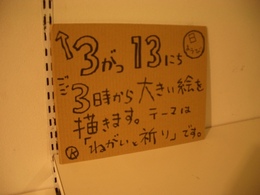 3がつ13にち
日
ごご
3時から大きい絵を
描きます。テーマは
「ねがいと祈り」です。